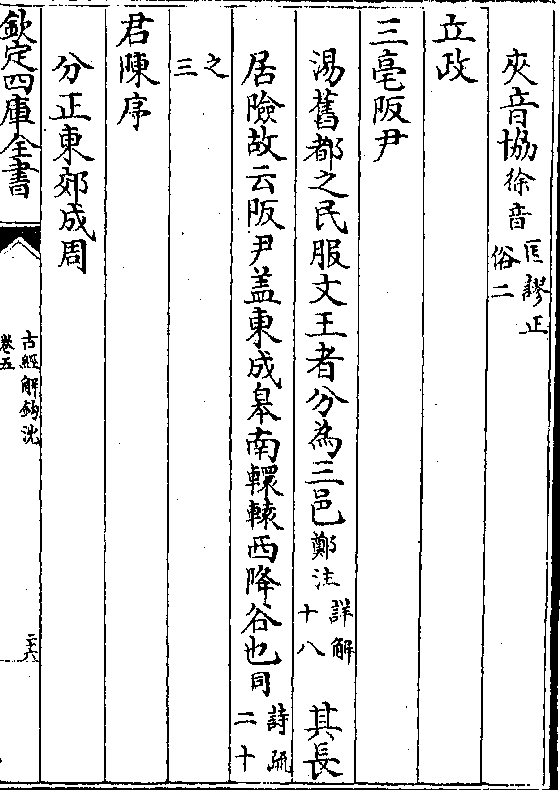 夾音協徐音匡謬正俗二
立政
三亳阪尹
湯舊都之民服文王者分為三邑鄭注詳解十八其長
居險故云阪尹盖東成皐南轘轅西降谷也同詩疏二十
之三
君陳序
分正東郊成周
欽定四庫全書
古經解鉤沈
卷五
二六